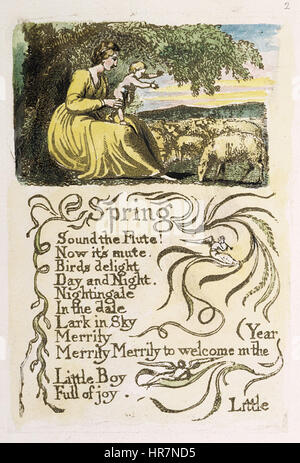 2
Spring
Sound the Flute!
Now it's mute.
Birds delight
Day and Night.
Nightingale
In the dale
Lark in Sky
Merrily
(Year
Merrily Merrily to welcome in the
Little Boy
Full of joy.
Little
HR7ND5